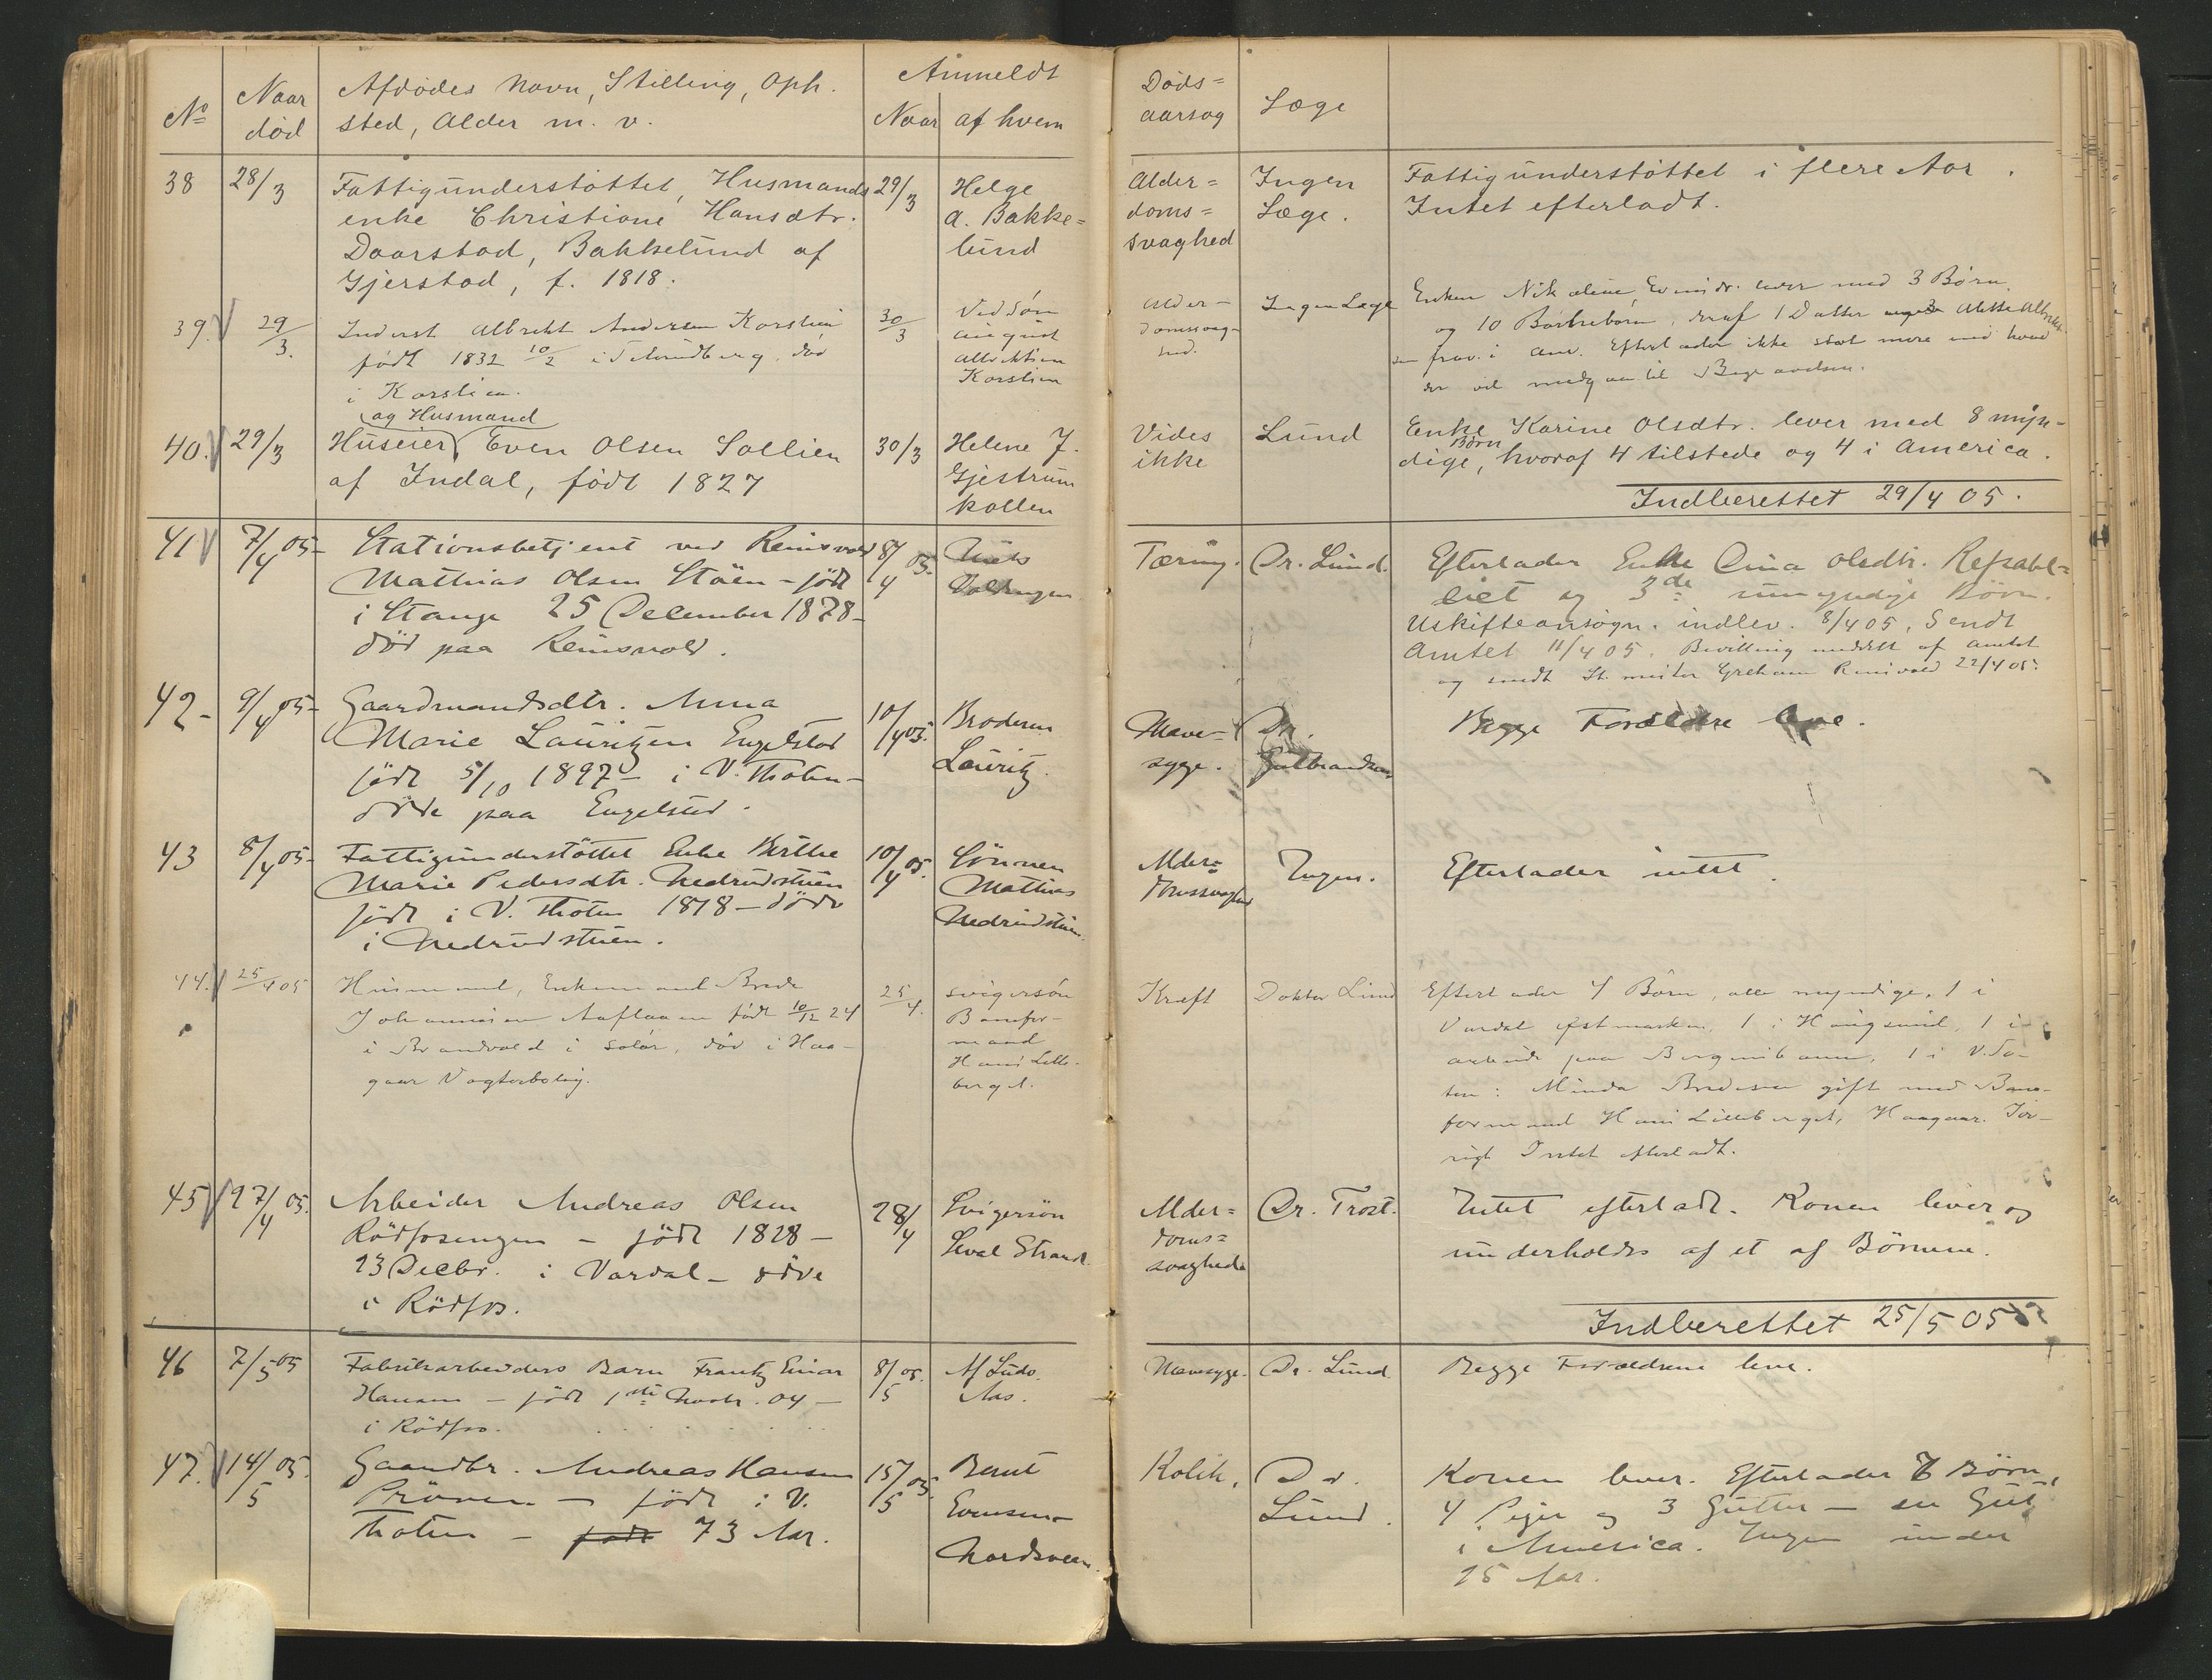 No
Naar
død
Afdødes Navn, Stilling, Oph.
sted, Alder m. v.
Anmeldt
Naar
af hvem
Døds=
aarsag
Læge
38
28/3
Fattigunderstøttet, Husmands
enke Christiane Hansdtr.
Daarstad, Bakkelund af
Gjerstad, f. 1818.
29/3
Helge
A. Bakke=
lund
Alder=
doms=
svaghed
Ingen
Læge.
Fattigunderstøttet i flere Aar.
Intet efterladt.
39.
29/3.
Inderst Albrekt Andersen Korslien
født 1832 10/2 i død
i Korslien.
30/3
Ved Søn
August
Albrektsen
Korslien
Alder-
domssvag-
hed.
Ingen Læge
Enken Nikoline lever med 3 Børn
og 10 Barnebørn, deraf 1 Datter
i Am. Efterlader ikke stort mere end hvad
der vil medgaa til Begravelsen.
og Husmand
40.
29/3
Huseier, Even Olsen Sollien
af Indal, født 1827
30/3
Helene J.
Gjestrum
kollen
Vides
ikke
Lund
Enke Karine Olsdtr. lever med 8 myn-
dige Børn, hvoraf 4 tilstede og 4 i America.
Indberettet 29/4 05.
41
7/4 05-
Stationsbetjent ved Reinsvold
Mathias Olsen Stöen - född
i Stange 25 December 1878-
död paa Reinsvold.
8/4 05.
Tæring.
Dr. Lund.
Efterlader Enke Lina Olsdtr. Refsahl=
eiet og 3de umyndige Börn.
Uskifteansøgn. indlev. 8/4 05, Sendt
Amtet 11/4 05. Bevilling meddelt af Amtet
og sendt St. mester Reinsvold 22/4 05.
42-
9/4 05-
Gaardmandsdtr. Anna
Marie Lauritzen Engelstad
födt 5/10 1897 - i V. Thoten-
döde paa Engelstad.
10/4 05.
Broderen
Lauritz.
Mave-
syge.
Dr.
Gulbrandsen
Begge Forældre leve.
43
8/4 05-
Fattigunderstöttet Enke Berthe
Marie Pedersdtr. Nedrudstuen
födt i V. Thoten 1818 - döde
i Nedrudstuen.
10/4 05.
Sönnen
Mathias
Nedrudstuen.
Alder=
domssvaghed
Ingen.
Efterlader intet.
44.
25/4 05
Husmand, Enkemand Brede
Johannesen Aaflaaen født 10/12 24
i Brandvold i Solør, død i Haa-
gaar Vogterbolig.
25/4.
Svigersøn
Banefor-
mand
Hans Lille-
berget.
Kræft
Doktor Lund
Efterlader 4 Børn, alle myndige, 1 i
Vardal Østmarken, 1 i Haugsund, 1 i
arbeide paa Bergensbanen, 1 i V. To-
ten: Minda Bredesen gift med Bane-
formand Hans Lilleberget, Haagaar. For-
rigt Intet efterladt.
45
27/4 05.
Arbeider Andreas Olsen
Rödfosengen - födt 1828 -
23 Decbr. i Vardal - döde
i Rödfos.
28/4
Svigersön
Seval Strand.
Alder=
doms=
svaghed
Dr. Trost.
Intet efterladt. Konen lever og
underholdes af et af Börnene.
Indberettet 25/5 05
46
7/5 05
Fabrikarbeiders Barn Frantz Einar
Hansen - födt 1ste Novbr. 04 -
i Rödfos.
8/5 05.
Af Ludv.
Aas.
Mavesyge.
Dr. Lund.
Begge Forældrene leve.
47.
14/5 05.
Gaardbr. Andreas Hansen
Pröven - födt i V.
Thoten - födt 73 Aar.
15/5 05.
Bernt
Evensen
Nordsveen.
Kolik.
Dr.
Lund.
Konen lever. Efterlader 7 Börn,
4 Piger og 3 Gutter - en Gut
i America. Ingen under
25 Aar.